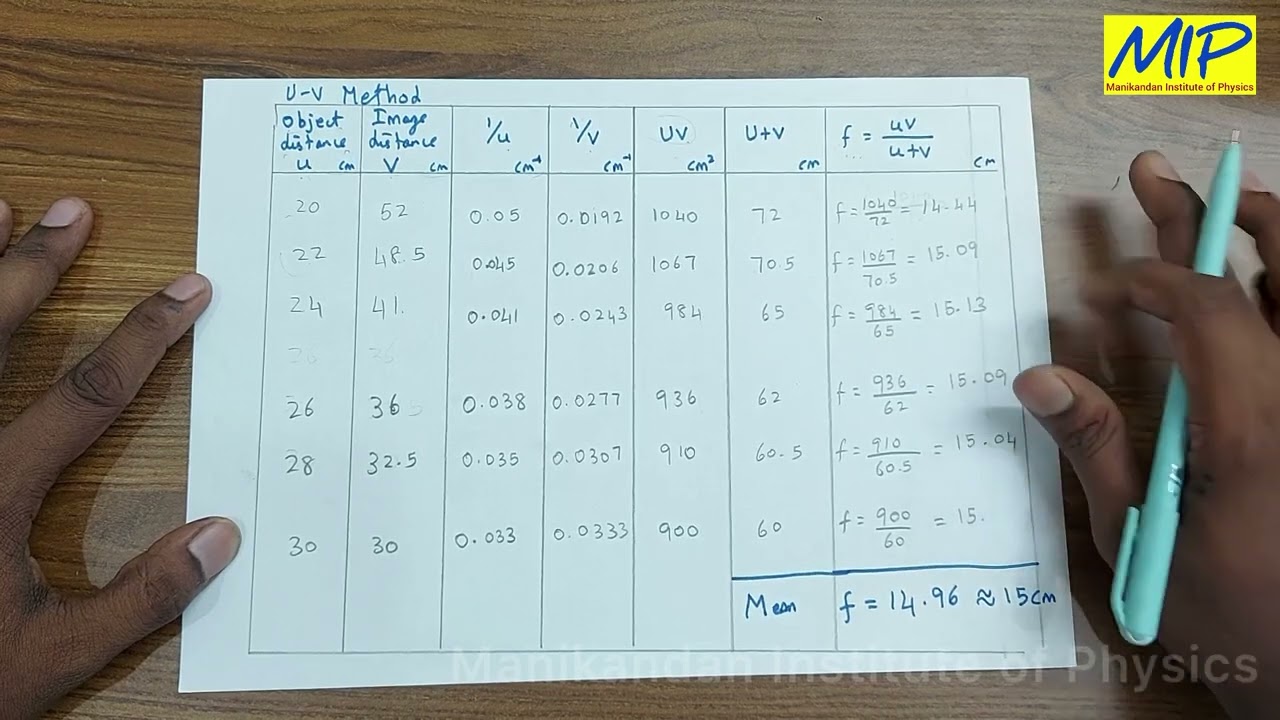 MIP
Manikandan Institute of Physics
U-V Method
Object distance u cm Image distance V cm 1/u cm⁻¹ 1/v cm⁻¹ UV cm² U+V cm f = uv/u+v cm
20 52 0.05 0.0192 1040 72 f = 1040/72 = 14.44
22 48.5 0.045 0.0206 1067 70.5 f = 1067/70.5 = 15.09
24 41. 0.041 0.0243 984 65 f = 984/65 = 15.13
26 36
26 36 0.038 0.0277 936 62 f = 936/62 = 15.09
28 32.5 0.035 0.0307 910 60.5 f = 910/60.5 = 15.04
30 30 0.033 0.0333 900 60 f = 900/60 = 15.
Mean f = 14.96 ≈ 15cm
Manikandan Institute of Physics